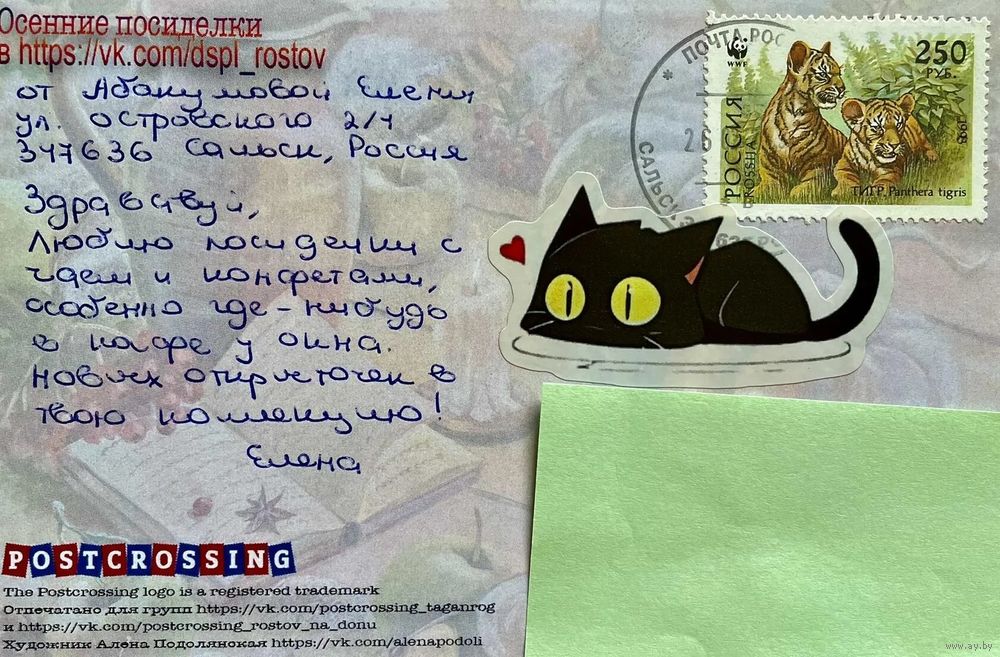 Осенние посиделки
в https://vk.com/dspl_rostov
от Абакумовой Елены
ул. Островского 2/4
347636 Сальск, Россия
Здравствуй,
Люблю посиделки с
чаем и конфетами,
особенно где-нибудь
в кафе у окна.
Новых открыточек в
твою коллекцию!
Елена
POSTCROSSING
The Postcrossing logo is a registered trademark
Отпечатано для групп https://vk.com/postcrossing_taganrog
и https://vk.com/postcrossing_rostov_na_donu
Художник Алена Подолянская https://vk.com/alenapodoli
ПОЧТА РОС
26
САЛЬСК
WWF
250
РУБ.
РОССИЯ
ROSSIJA
1993
ТИГР. Panthera tigris
www.ay.by